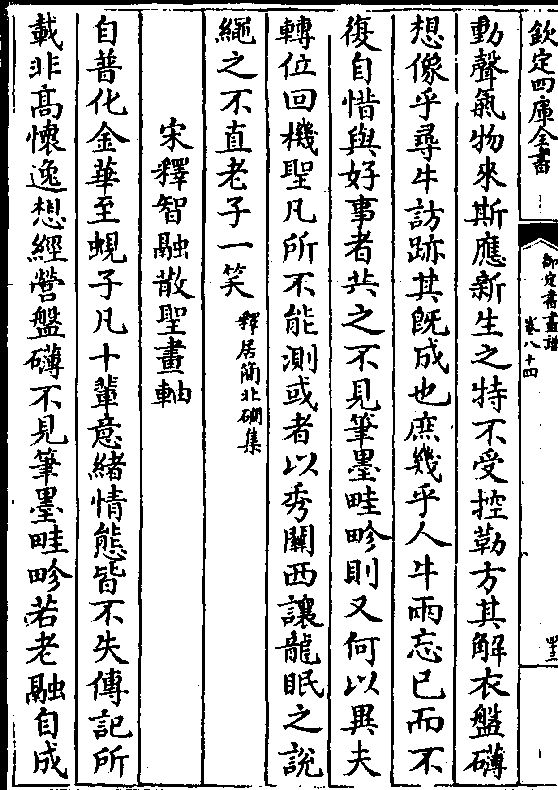 欽定四庫全書
御定書畫譜
卷八十四
四十三
動聲氣物來斯應新生之特不受控勒方其解衣盤礴
想像乎尋牛訪跡其旣成也庶幾乎人牛兩忘已而不
復自惜與好事者共之不見筆墨畦畛則又何以異夫
轉位回機聖凡所不能測或者以秀關西讓龍眠之說
繩之不直老子一笑釋居簡北磵集
宋釋智融散聖畫軸
自普化金華至蜆子凡十輩意緒情態皆不失傳記所
載非高懷逸想經營盤礴不見筆墨畦畛若老融自成